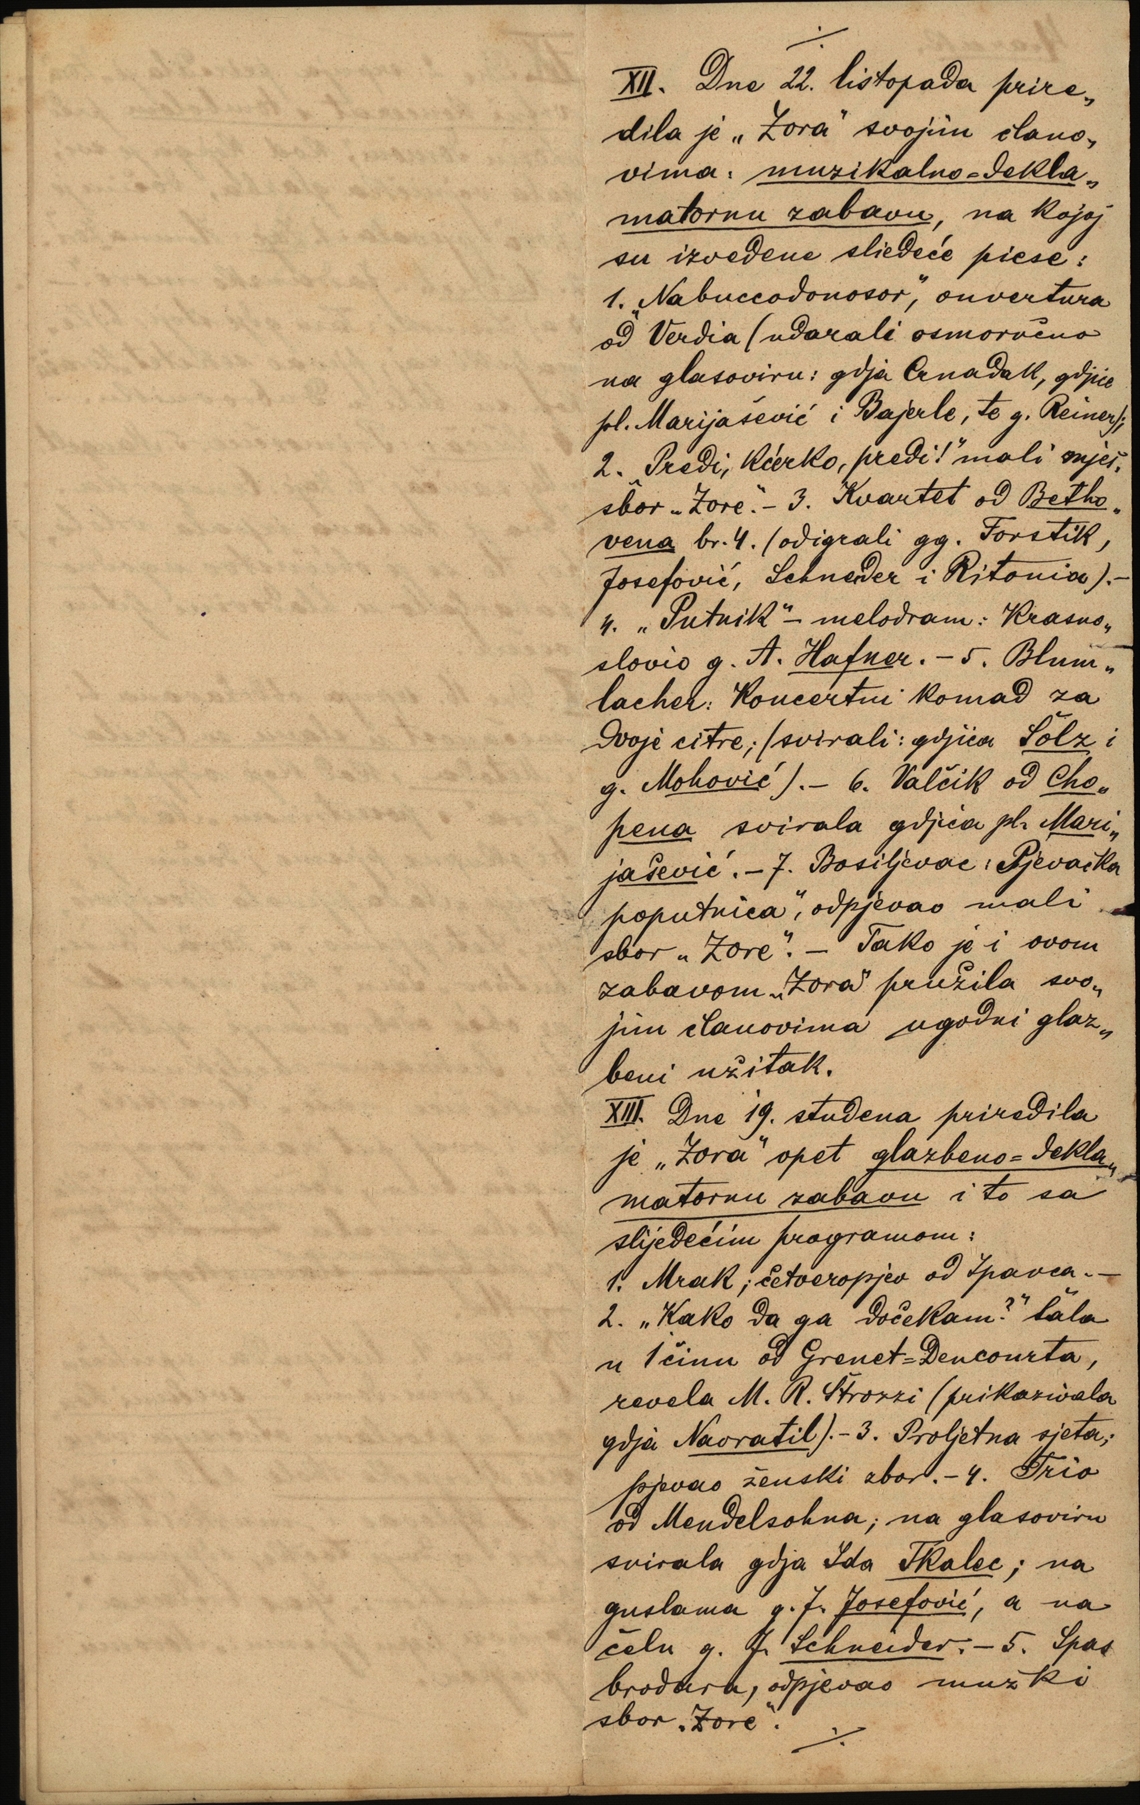 ·/·
XII. Dne 22. listopada prire„
dila je „Zora" svojim člano„
vima: muzikalno=dekla„
matornu zabavu, na kojoj
su izvedene sliedeće piese:
1. „Nabuccodonosor", ouvertura
od Verdia (udarali osmoručno
na glasoviru: gdja Crnadak, gdjice
pl. Marijašević i Bajerle, te g. Reiner);
2. Predi, kćerko, predi!" mali mješ.
sbor „Zore". – 3. Kvartet od Betho„
vena br. 4. (odigrali gg. Forstik,
Josefović, Schneider i Ritonia). –
4. „Putnik" – melodram: Krasno„
slovio g. A. Hafner. – 5. Blum„
lacher: Koncertni komad za
dvoje citre; (svirali: gdjica Šolz i
g. Mohović). – 6. Valčik od Cho„
pena svirala gdjica pl. Mari„
jašević. – 7. Bosiljevac: Pjevačka
poputnica", odpjevao mali
sbor „Zore". – Tako je i ovom
zabavom „Zora" pružila svo„
jim članovima ugodni glaz„
beni užitak.
XIII. Dne 19. studena priredila
je „Zora" opet glazbeno=dekla„
matornu zabavu i to sa
slijedećim programom:
1. Mrak; četveropjev od Ipavca. –
2. „Kako da ga dočekam?" šala
u 1 činu od Grenet=Dencourta,
prevela M. R. Strozzi (prikazivala
gdja Navratil). – 3. Proljetna sjeta;
pjevao ženski zbor. – 4. Trio
od Mendelsohna; na glasoviru
svirala gdja Ida Tkalec; na
guslama g. J. Josefović, a na
čelu g. J. Schneider. – 5. Spas
brodara, odpjevao mužki
sbor „Zore".
·/·